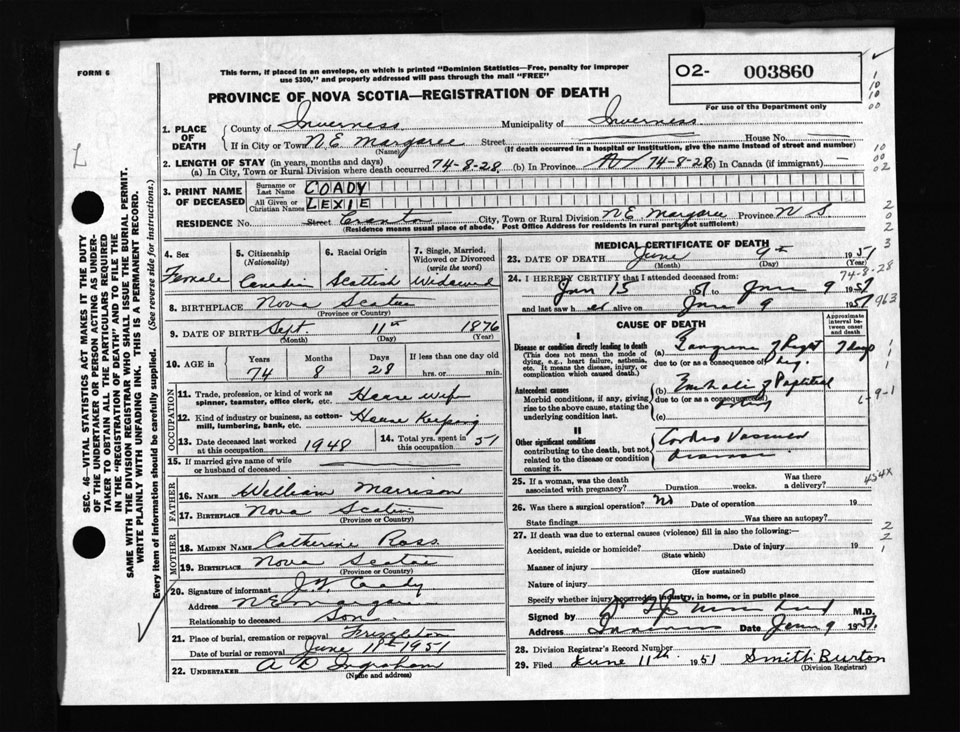 FORM 6
This form, if placed in an envelope, on which is printed "Dominion Statistics—Free, penalty for improper
use $300," and properly addressed will pass through the mail "FREE"
O2- 003860
For use of the Department only
PROVINCE OF NOVA SCOTIA—REGISTRATION OF DEATH
1. PLACE OF DEATH
County of Inverness Municipality of Inverness
If in City or Town N.E. Margaree Street House No.
(Name) (If death occurred in a hospital or institution, give the name instead of street and number)
2. LENGTH OF STAY (in years, months and days)
(a) In City, Town or Rural Division where death occurred 74-8-28 (b) In Province 74-8-28 (c) In Canada (if immigrant) —
3. PRINT NAME OF DECEASED
Surname or Last Name COADY
All Given or Christian Names LEXIE
RESIDENCE No. Street City, Town or Rural Division N.E. Margaree Province N S
(Residence means usual place of abode. Post Office Address for residents in rural parts not sufficient)
4. Sex
Female
5. Citizenship
(Nationality)
Canadian
6. Racial Origin
Scottish
7. Single, Married, Widowed or Divorced
(write the word)
Widowed
8. BIRTHPLACE Nova Scotia
(Province or Country)
9. DATE OF BIRTH Sept 11th 1876
(Month) (Day) (Year)
10. AGE in Years Months Days If less than one day old
74 8 28 hrs. or min.
OCCUPATION
11. Trade, profession, or kind of work as spinner, teamster, office clerk, etc. House wife
12. Kind of industry or business, as cotton-mill, lumbering, bank, etc. House Keeping
13. Date deceased last worked at this occupation 1948
14. Total yrs. spent in this occupation 51
15. If married give name of wife or husband of deceased
FATHER
16. NAME William Marrison
17. BIRTHPLACE Nova Scotia
(Province or Country)
MOTHER
18. MAIDEN NAME Catherine Ross
19. BIRTHPLACE Nova Scotia
(Province or Country)
20. Signature of informant Coady
Address N E Margaree
Relationship to deceased Son
21. Place of burial, cremation or removal Frizzleton
Date of burial or removal June 11th 1951
22. UNDERTAKER A D Ingraham
(Name and address)
MEDICAL CERTIFICATE OF DEATH
23. DATE OF DEATH June 9th 1951
(Month) (Day) (Year)
74-8-28
24. I HEREBY CERTIFY that I attended deceased from:
Jan 15 1951 to June 9 1951
and last saw h er alive on June 9 1951
963
CAUSE OF DEATH
Approximate interval between onset and death
I
Disease or condition directly leading to death
(This does not mean the mode of dying, e.g., heart failure, asthenia, etc. It means the disease, injury, or complication which caused death.)
(a) Gangrene of Right 7 days
due to (or as a consequence of) leg
Antecedent causes
Morbid conditions, if any, giving rise to the above cause, stating the underlying condition last.
(b) Emboli of Popliteal
due to (or as a consequence of) artery
(c)
II
Other significant conditions
contributing to the death, but not related to the disease or condition causing it.
Cardio Vascular
disease
25. If a woman, was the death associated with pregnancy? Duration weeks. Was there a delivery?
454X
26. Was there a surgical operation? No Date of operation 19
State findings Was there an autopsy?
27. If death was due to external causes (violence) fill in also the following:—
Accident, suicide or homicide? Date of injury 19
(State which)
Manner of injury
(How sustained)
Nature of injury
Specify whether injury occurred in industry, in home, or in public place
Signed by M.D.
Address Inverness Date June 9 1951
28. Division Registrar's Record Number
29. Filed June 11th 1951 Smith Burton
(Division Registrar)
SEC. 46—VITAL STATISTICS ACT MAKES IT THE DUTY
OF THE UNDERTAKER OR PERSON ACTING AS UNDER-
TAKER TO OBTAIN ALL THE PARTICULARS REQUIRED
IN THE "REGISTRATION OF DEATH" AND TO FILE THE
SAME WITH THE DIVISION REGISTRAR WHO SHALL ISSUE THE BURIAL PERMIT.
WRITE PLAINLY WITH UNFADING INK. THIS IS A PERMANENT RECORD.
Every item of information should be carefully supplied. (See reverse side for instructions.)